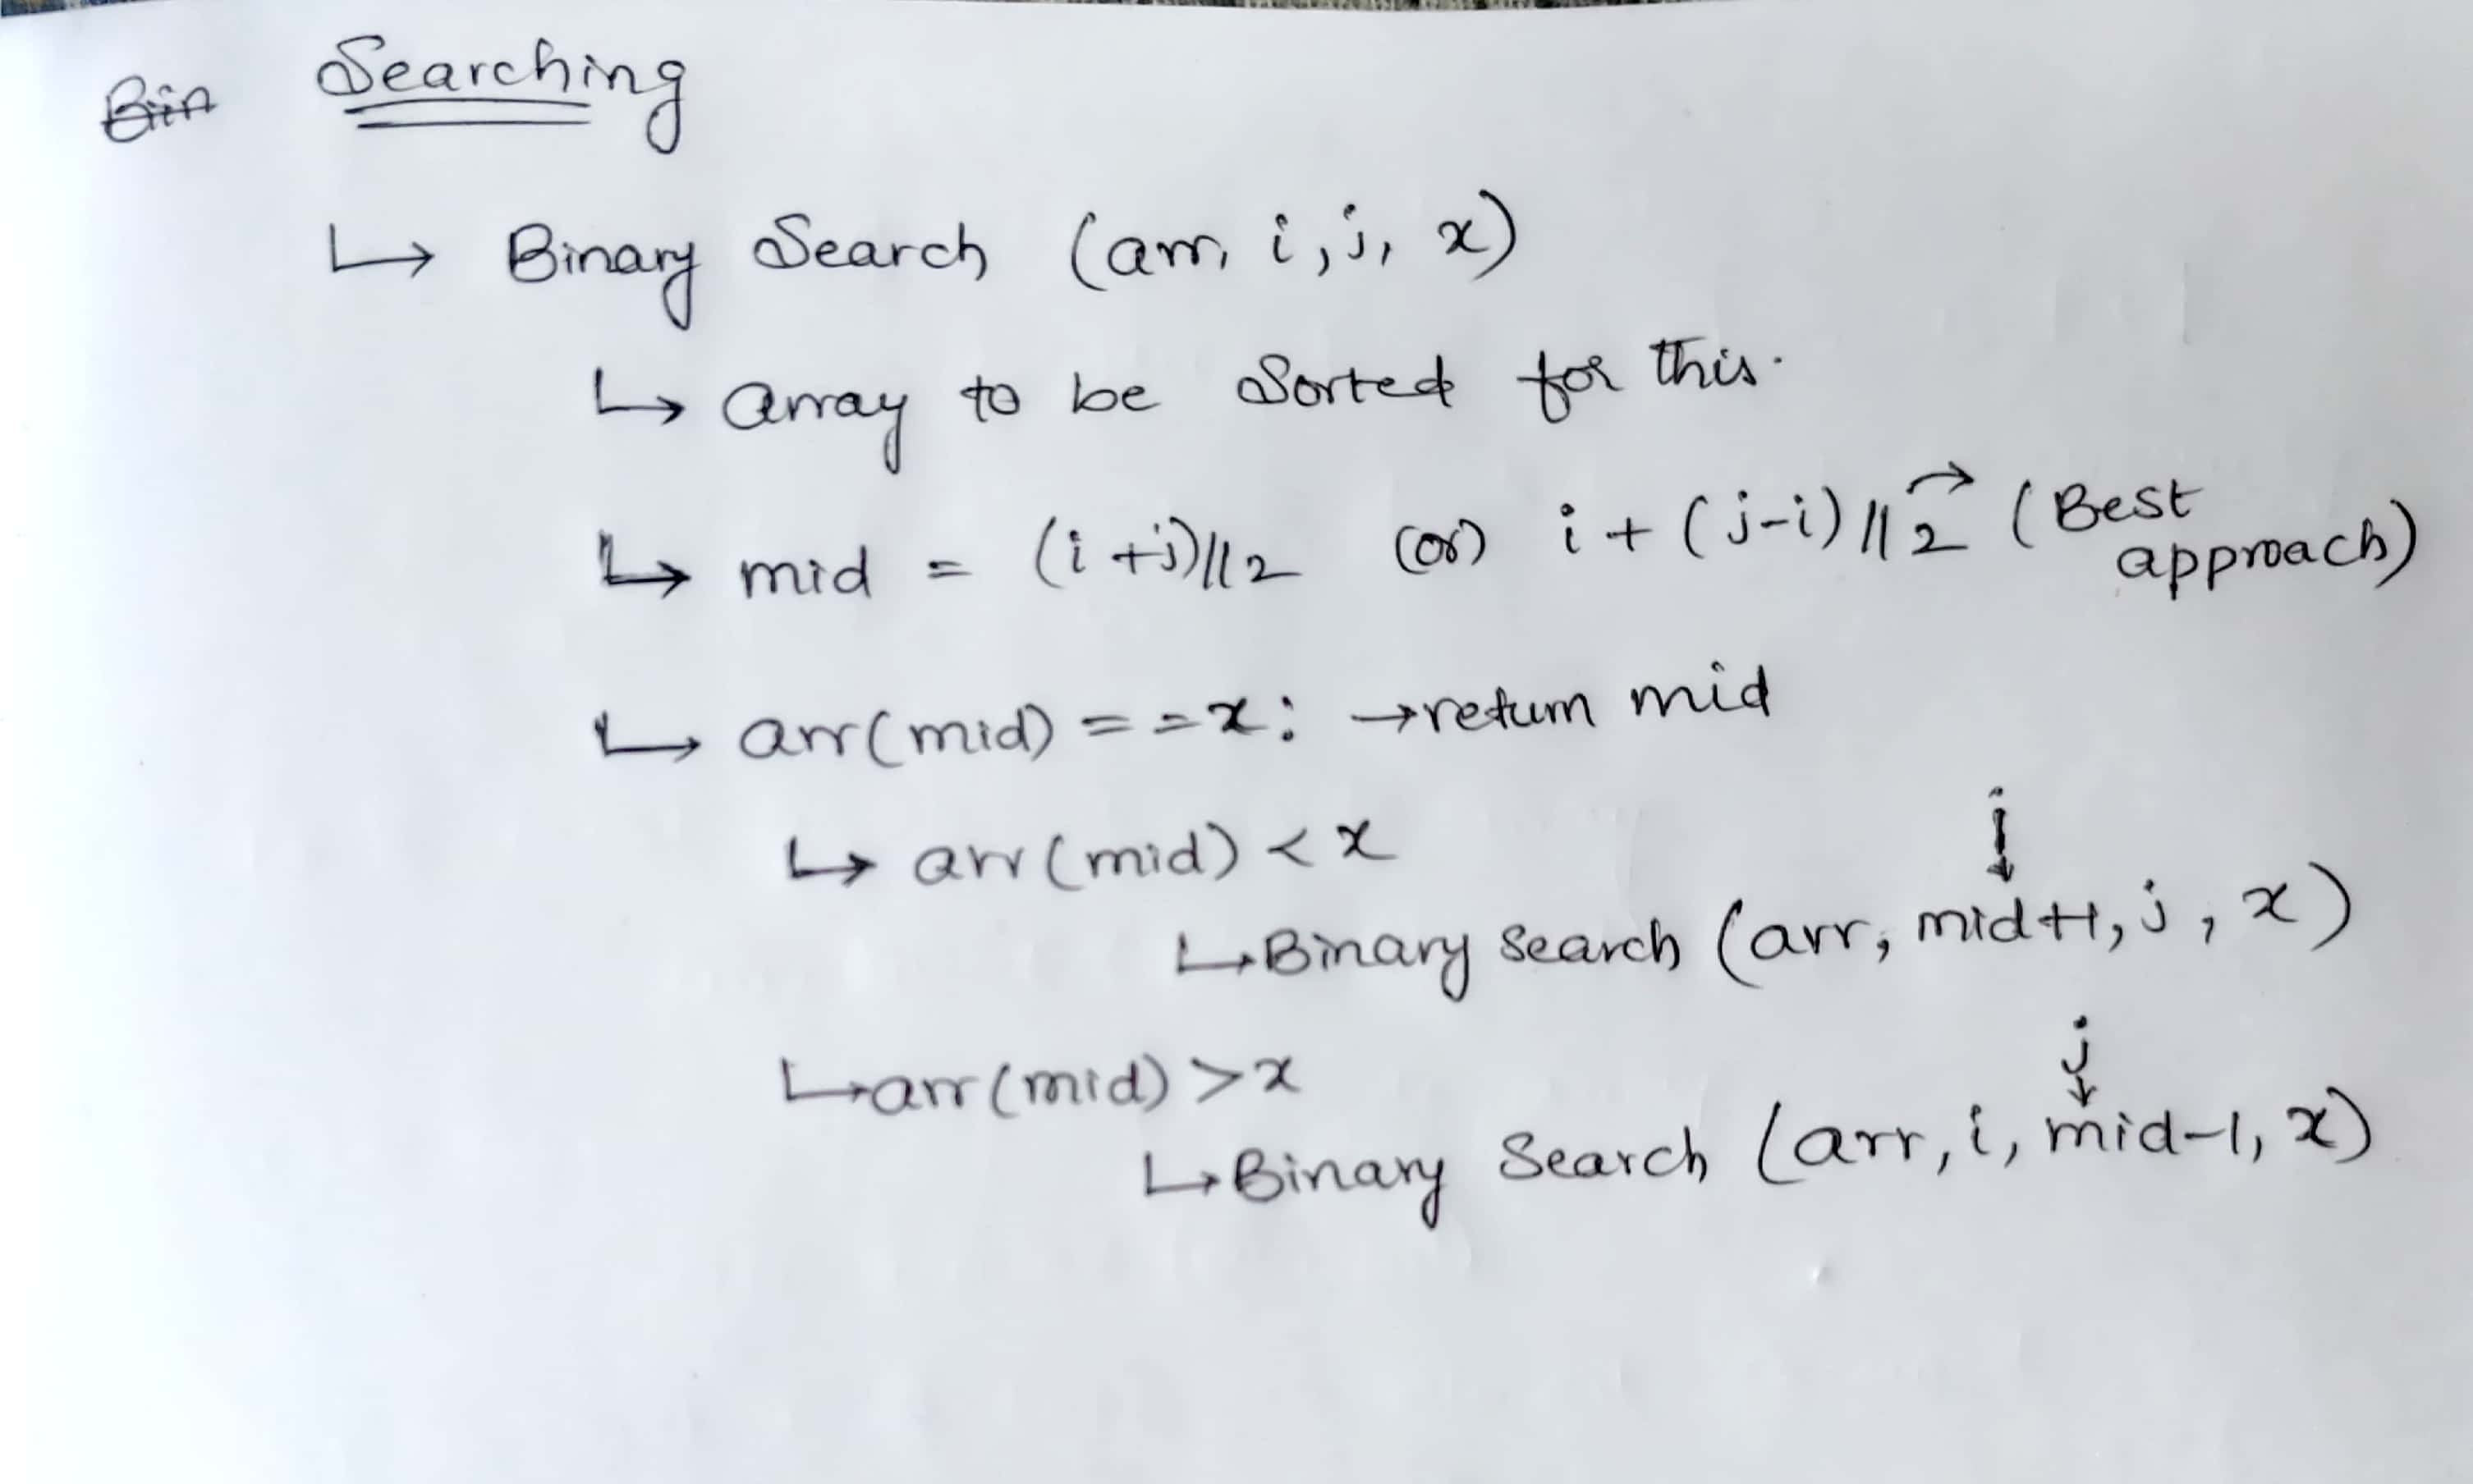 Bin Searching
↳ Binary Search (arr, i, j, x)
↳ array to be Sorted for this.
↳ mid = (i+j)//2 (or) i + (j-i)//2 → (Best approach)
↳ arr(mid) == x: → return mid
↳ arr(mid) < x
i
↓
↳ Binary search (arr, mid+1, j, x)
↳ arr(mid) > x
j
↓
↳ Binary Search (arr, i, mid-1, x)